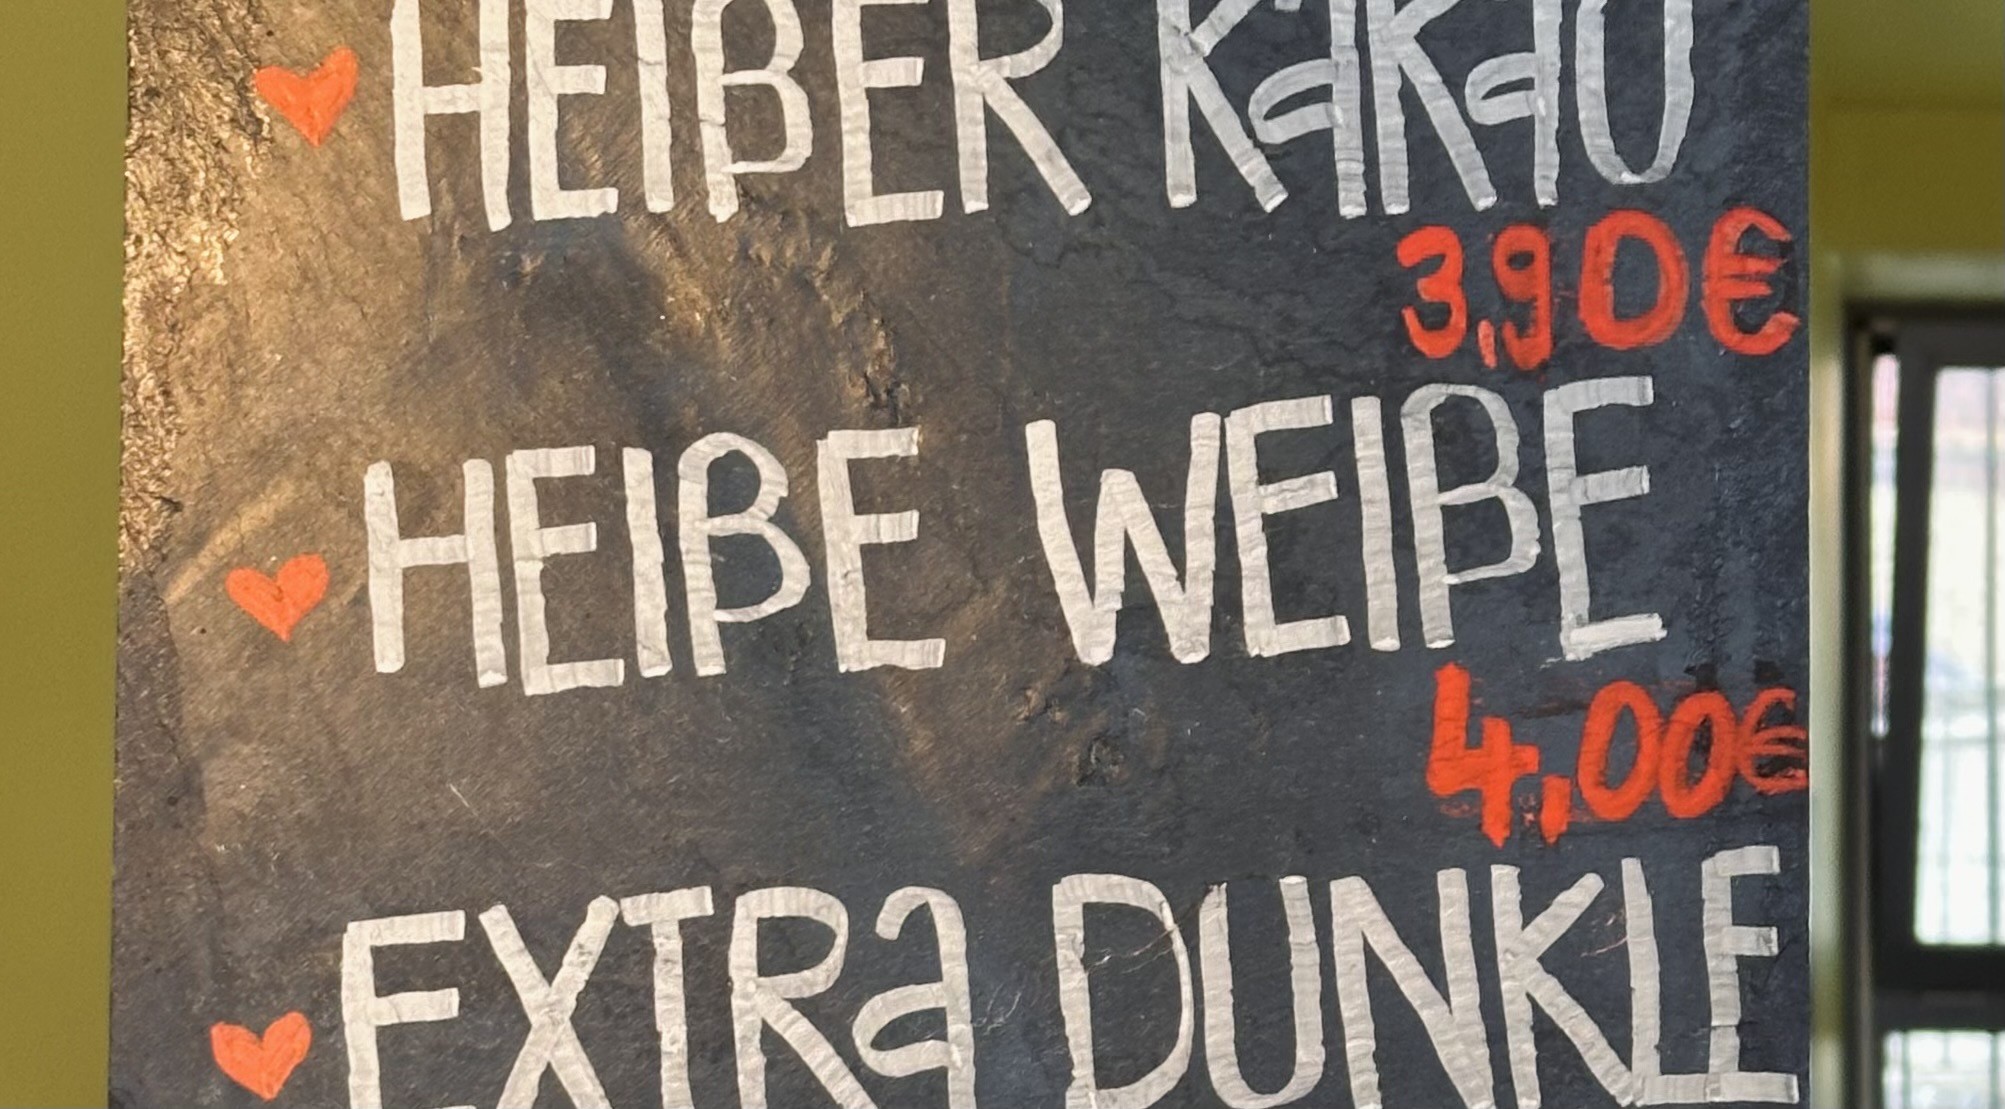 HEIßER KaKaU
3,90€
HEIßE WEIßE
4,00€
EXTRa DUNKLE